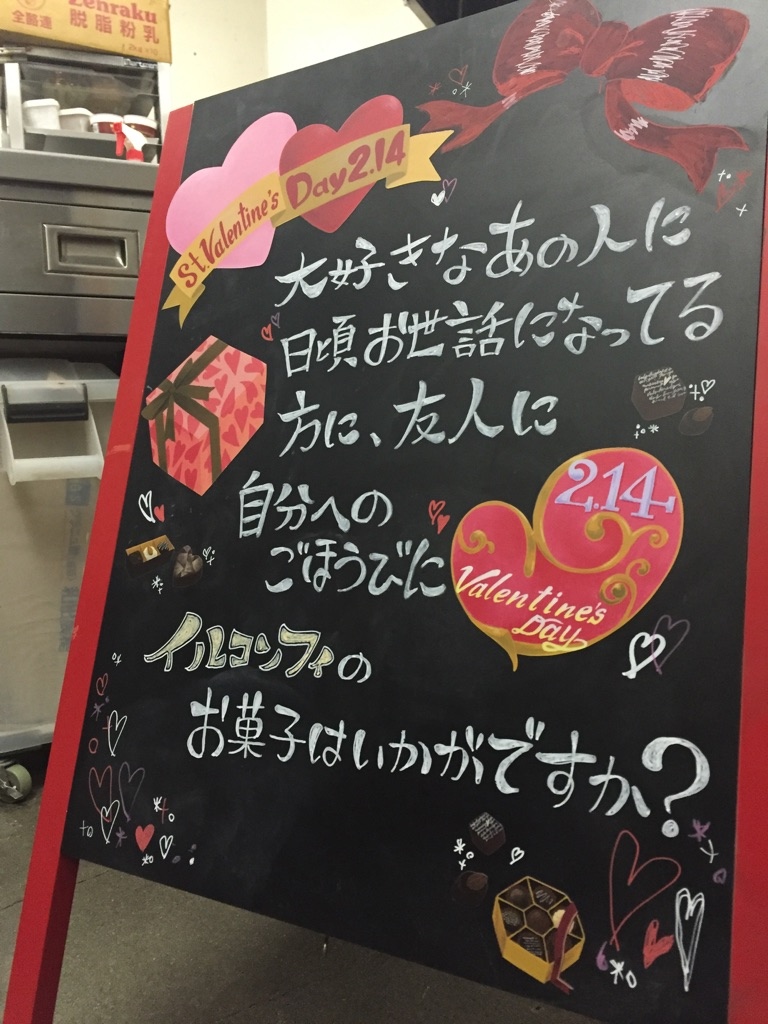 Zenraku
全酪連 脱脂粉乳
St.Valentine's Day 2.14
大好きなあの人に
日頃お世話になってる
方に、友人に
自分への
ごほうびに
2.14
Valentine's
Day
イルコンフィの
お菓子はいかがですか?